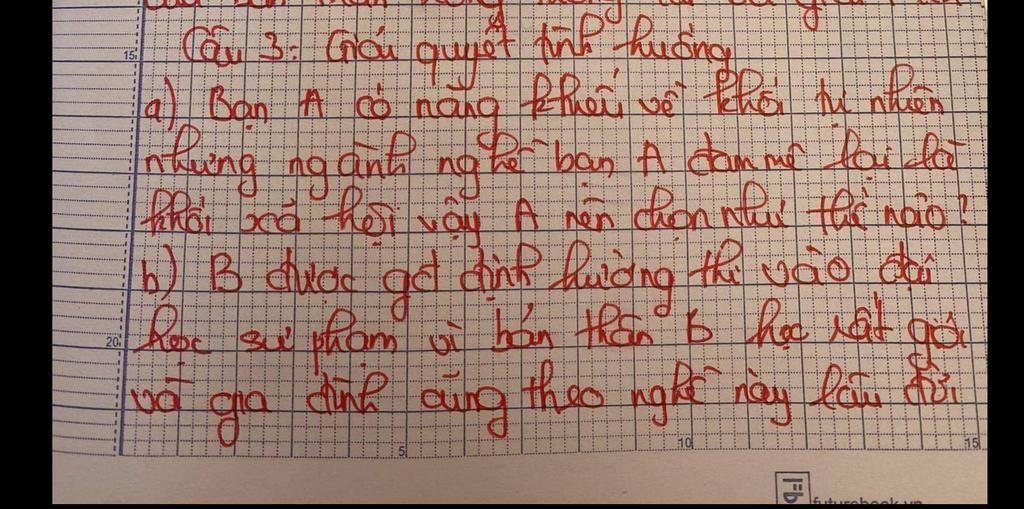 Câu 3: Giải quyết tình huống
15
a) Bạn A có năng khiếu về khối tự nhiên
nhưng ngành nghề bạn A đam mê lại là
khối xã hội vậy A nên chọn như thế nào?
b) B được gđ định hướng thi vào đại
20 học sư phạm vì bản thân B học rất giỏi
và gia đình cũng theo nghề này lâu đời
5 10 15
futurebook.vn